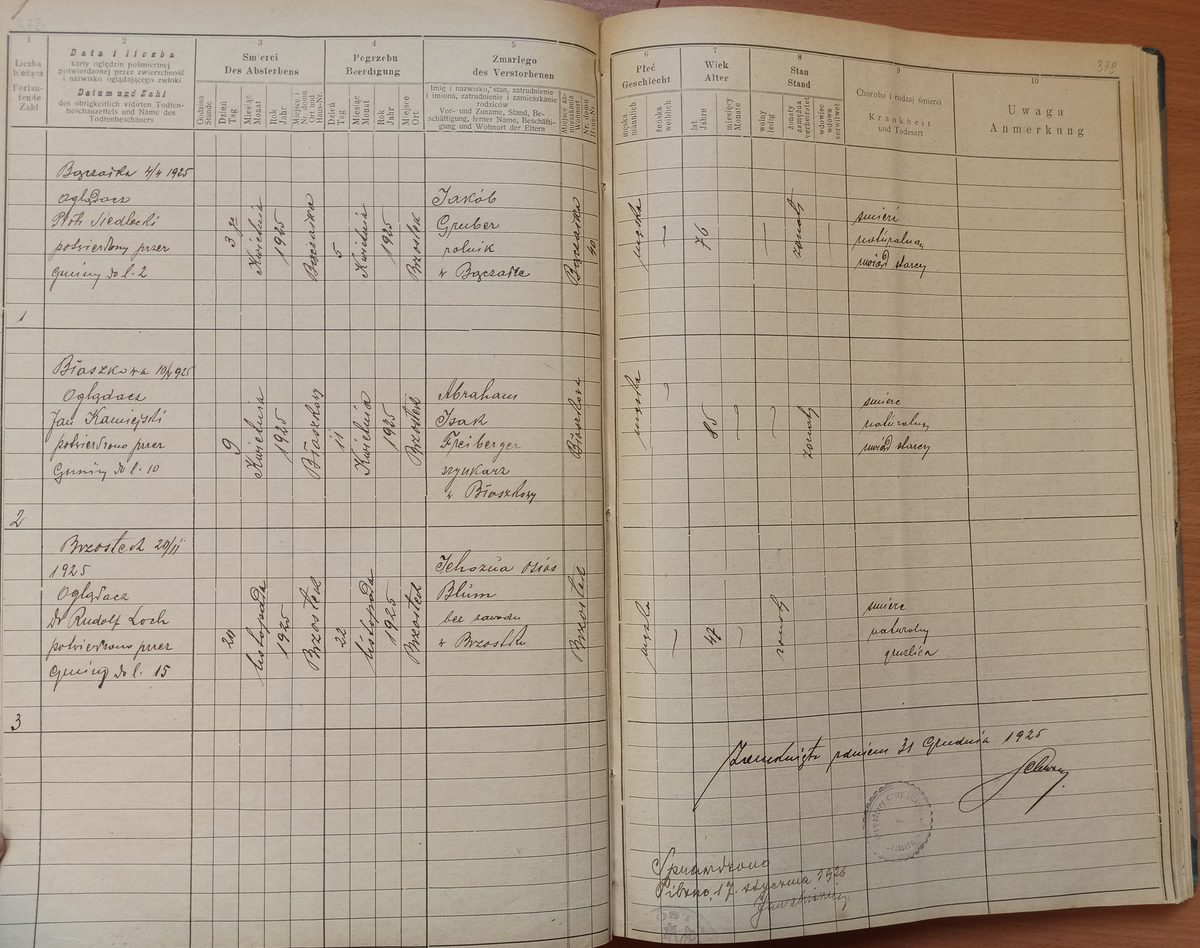 379
1
2
3
4
5
Liczba bieżąca
Fortlaufende Zahl
Data i liczba
karty oględzin pośmiertnej
potwierdzonej przez zwierzchność
i nazwisko oglądającego zwłoki
Datum und Zahl
des obrigkeitlich vidirten Todten-
beschauzettels und Name des
Todtenbeschauers
Śmierci
Des Absterbens
Godzina
Stunde
Dzień
Tag
Miesiąc
Monat
Rok
Jahr
Miejsce i
Nr. domu
Ort und
Haus-Nr.
Pogrzebu
Beerdigung
Dzień
Tag
Miesiąc
Monat
Rok
Jahr
Miejsce
Ort
Zmarłego
des Verstorbenen
Imię i nazwisko, stan, zatrudnienie
i imiona, zatrudnienie i zamieszkanie
rodziców
Vor- und Zuname, Stand, Be-
schäftigung, ferner Name, Beschäfti-
gung und Wohnort der Eltern
6
7
8
9
10
Płeć
Geschlecht
męska
männlich
żeńska
weiblich
Wiek
Alter
lat
Jahre
miesięcy
Monate
Stan
Stand
wolny
ledig
żonaty
zamężna
verheiratet
wdowiec
wdowa
verwitwet
Choroba i rodzaj śmierci
Krankheit
und Todesart
Uwaga
Anmerkung
1
Bączałka 4/4 1925
Oglądacz
Piotr Siedlecki
potwierdzony przez
gminy do l. 2
3
Kwietnia
1925
Bączałka
5
Kwietnia
1925
Brzostek
Jakób
Gruber
rolnik
w Bączałka
Bączałka
40
męska
76
żonaty
śmierć
naturalna
uwiąd starczy
2
Błaszkowa 10/4 925
Oglądacz
Jan Kamiejski
potwierdzono przez
Gminy do l. 10
9
Kwietnia
1925
Błaszkowy
11
Kwietnia
1925
Brzostek
Abraham
Isak
Freiberger
w Błaszkowy
Błaszkowa
męska
85
żonaty
śmierc
naturalny
uwiąd starczy
3
Brzostek 20/11
1925
Oglądacz
Dr Rudolf Loch
potwierdzono przez
Gminy do l. 15
20
listopada
1925
Brzostek
22
listopada
1925
Brzostek
Jehozua Osias
Blum
bez zawodu
w Brzostku
Brzostek
męska
42
żonaty
śmierc
naturalny
gruźlica
Zamknięto z dniem 31 Grudnia 1925
Sprawdzono
Pilzno, 17. stycznia 1926